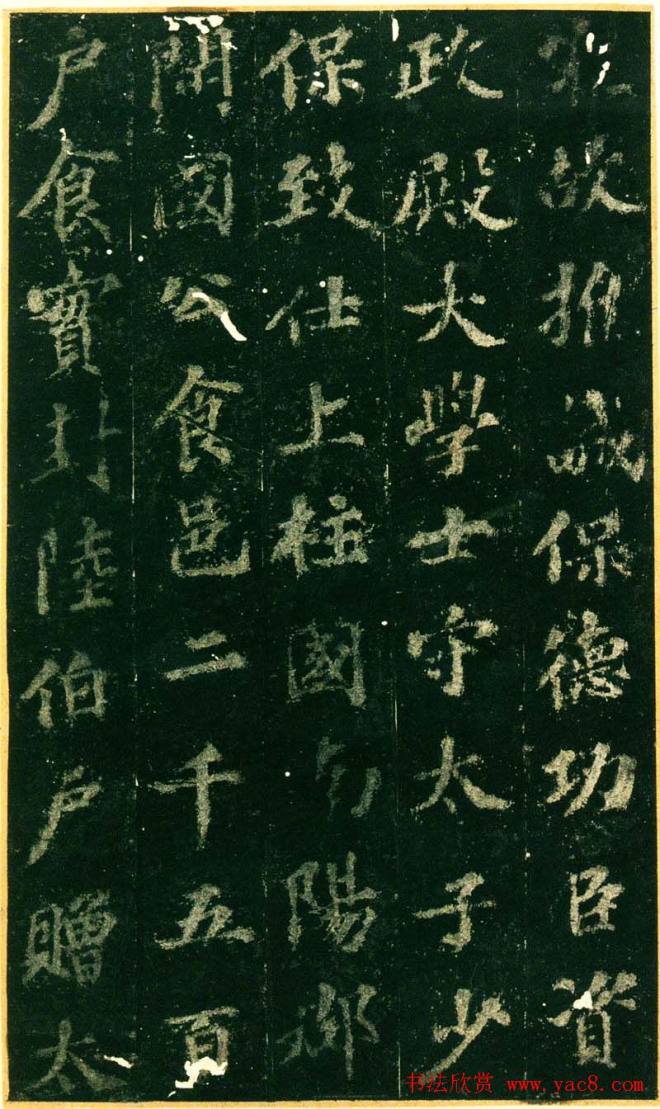 故推誠保德功臣資
政殿大學士守太子少
保致仕上柱國陽郡
開國公食邑二千五百
户食實封陸伯户贈太
书法欣赏 www.yac8.com